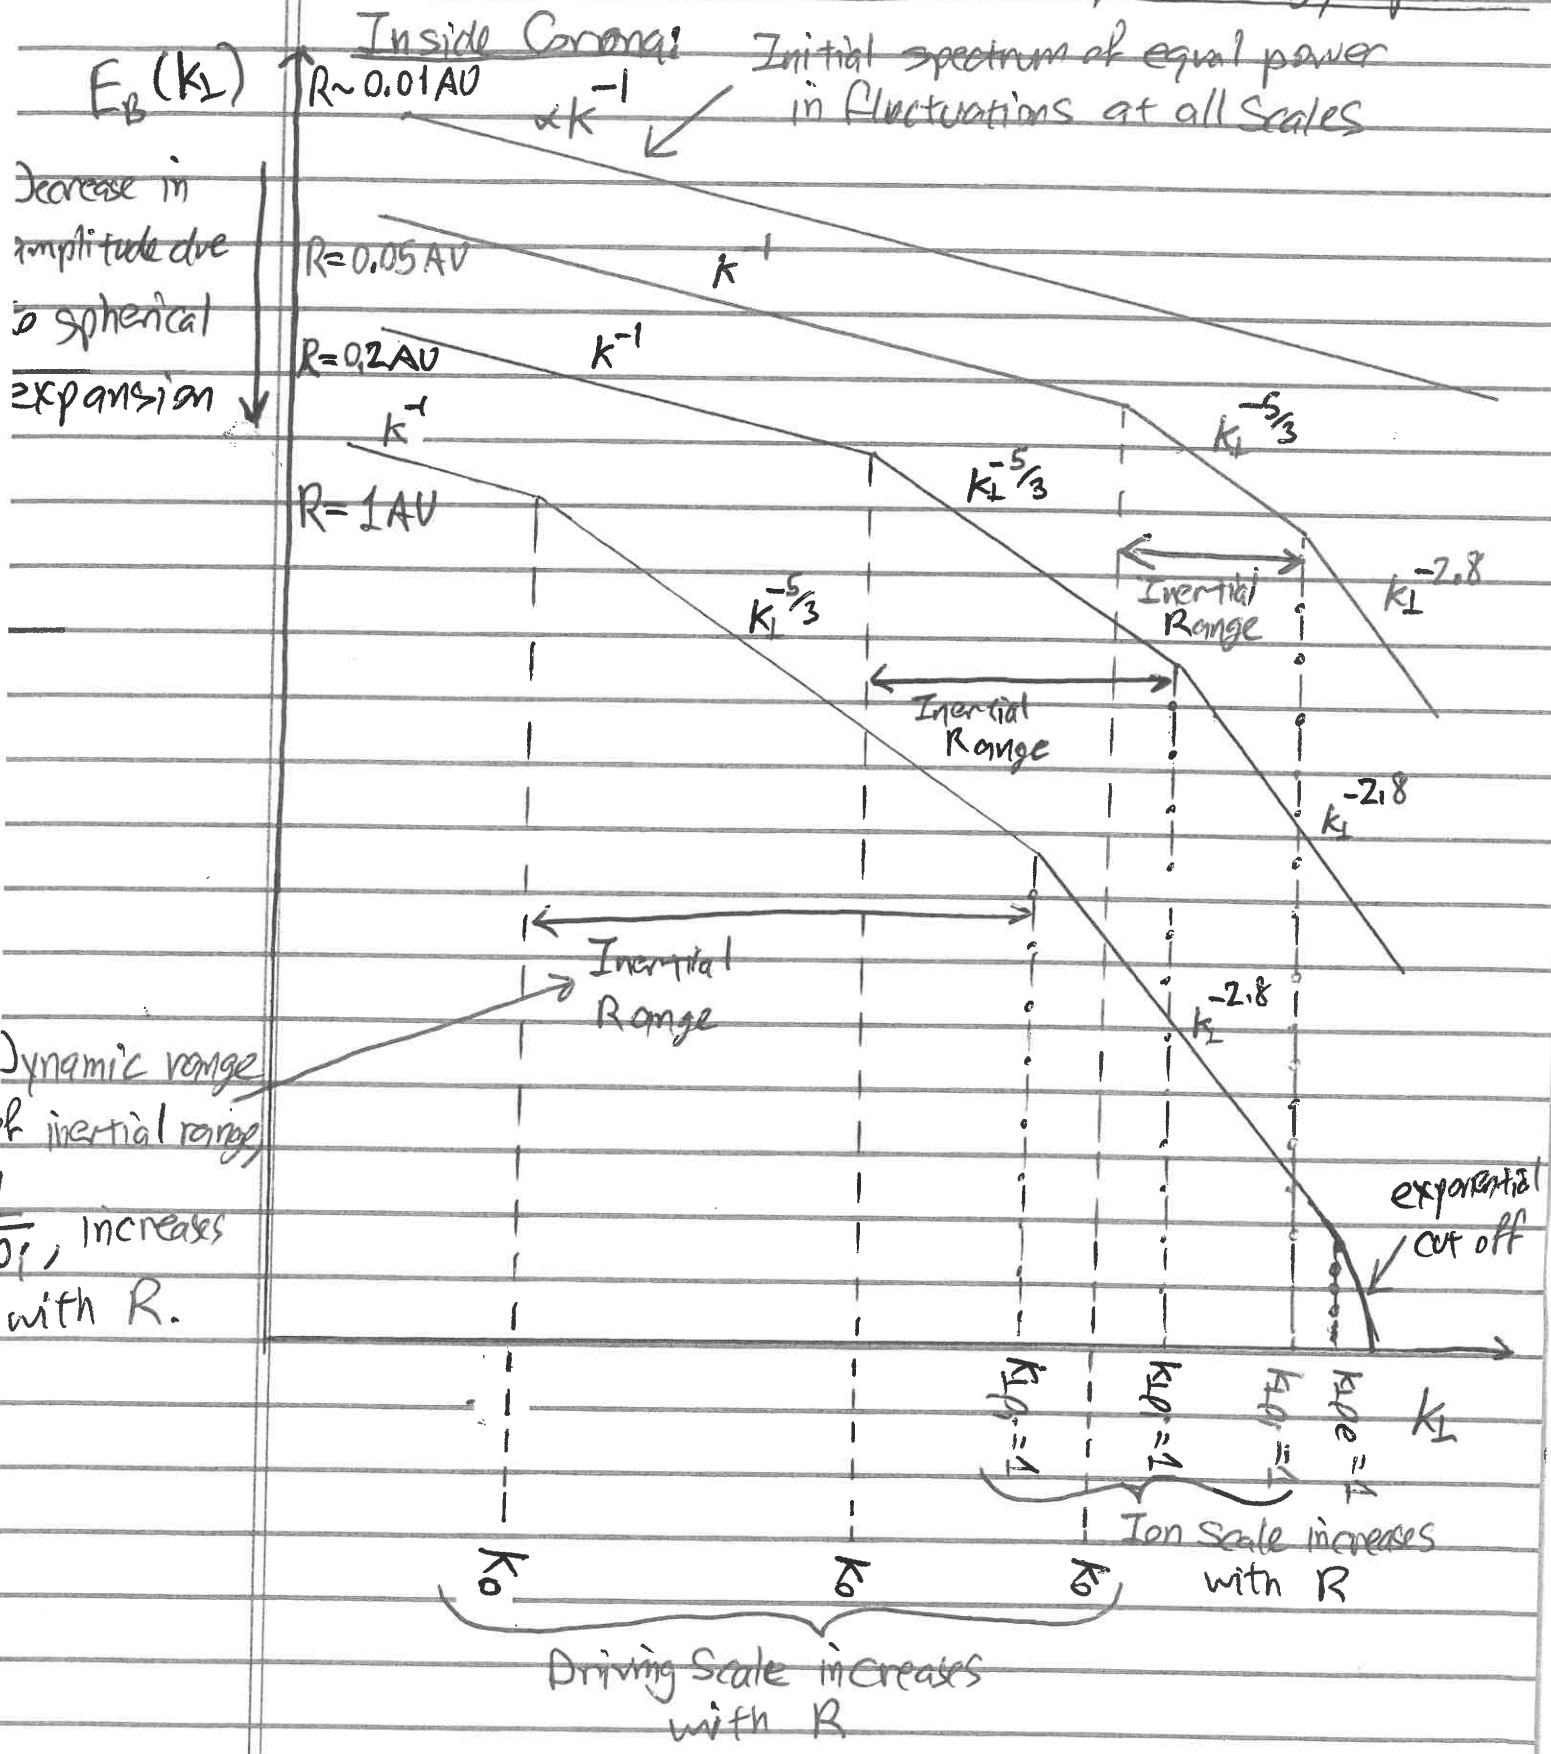 Inside Corona:
Initial spectrum of equal power
in fluctuations at all scales
E_B(k⊥)
R~0.01 AU
∝k^-1
Decrease in
amplitude due
to spherical
expansion
R=0.05 AU
k^-1
R=0.2 AU
k^-1
k⊥^-5/3
k^-1
R=1 AU
k⊥^-5/3
k⊥^-2.8
Inertial
Range
k⊥^-5/3
Inertial
Range
k⊥^-2.8
Inertial
Range
k⊥^-2.8
Dynamic range
of inertial range,
increases
with R.
exponential
cut off
k⊥ρi=1
k⊥ρi=1
k⊥ρi=1
k⊥ρe=1
k⊥
Ion Scale increases
with R
k0
k0
k0
Driving Scale increases
with R